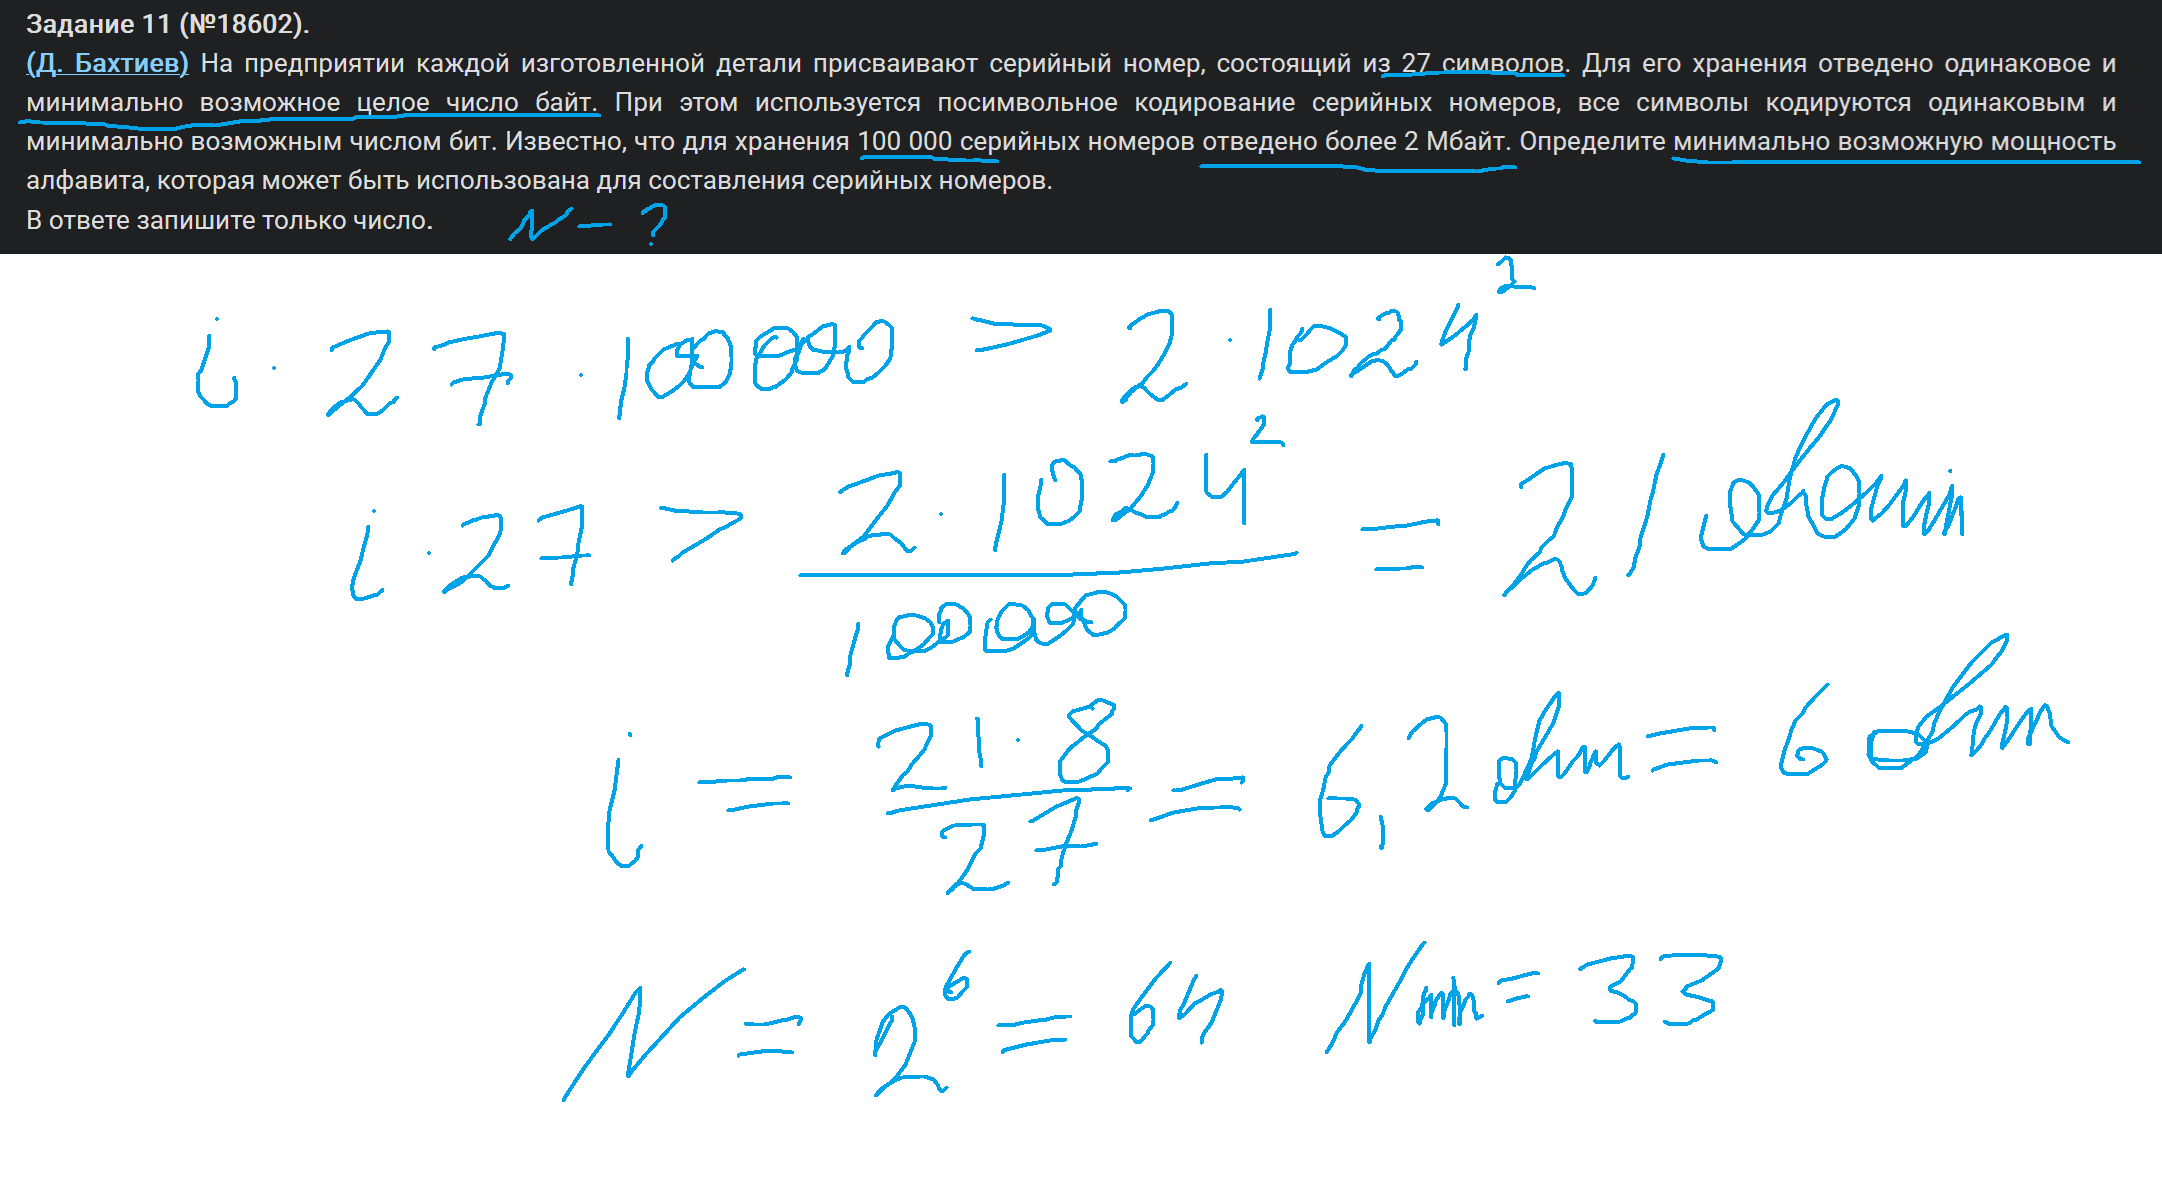 Задание 11 (№18602).
(Д. Бахтиев) На предприятии каждой изготовленной детали присваивают серийный номер, состоящий из 27 символов. Для его хранения отведено одинаковое и
минимально возможное целое число байт. При этом используется посимвольное кодирование серийных номеров, все символы кодируются одинаковым и
минимально возможным числом бит. Известно, что для хранения 100 000 серийных номеров отведено более 2 Мбайт. Определите минимально возможную мощность
алфавита, которая может быть использована для составления серийных номеров.
В ответе запишите только число. N - ?
i · 27 · 100000 > 2 · 1024²
i · 27 > 2 · 1024² / 100000 = 21 байт
i = 21 · 8 / 27 = 6,2 бит = 6 бит
N = 2⁶ = 64 Nmin = 33